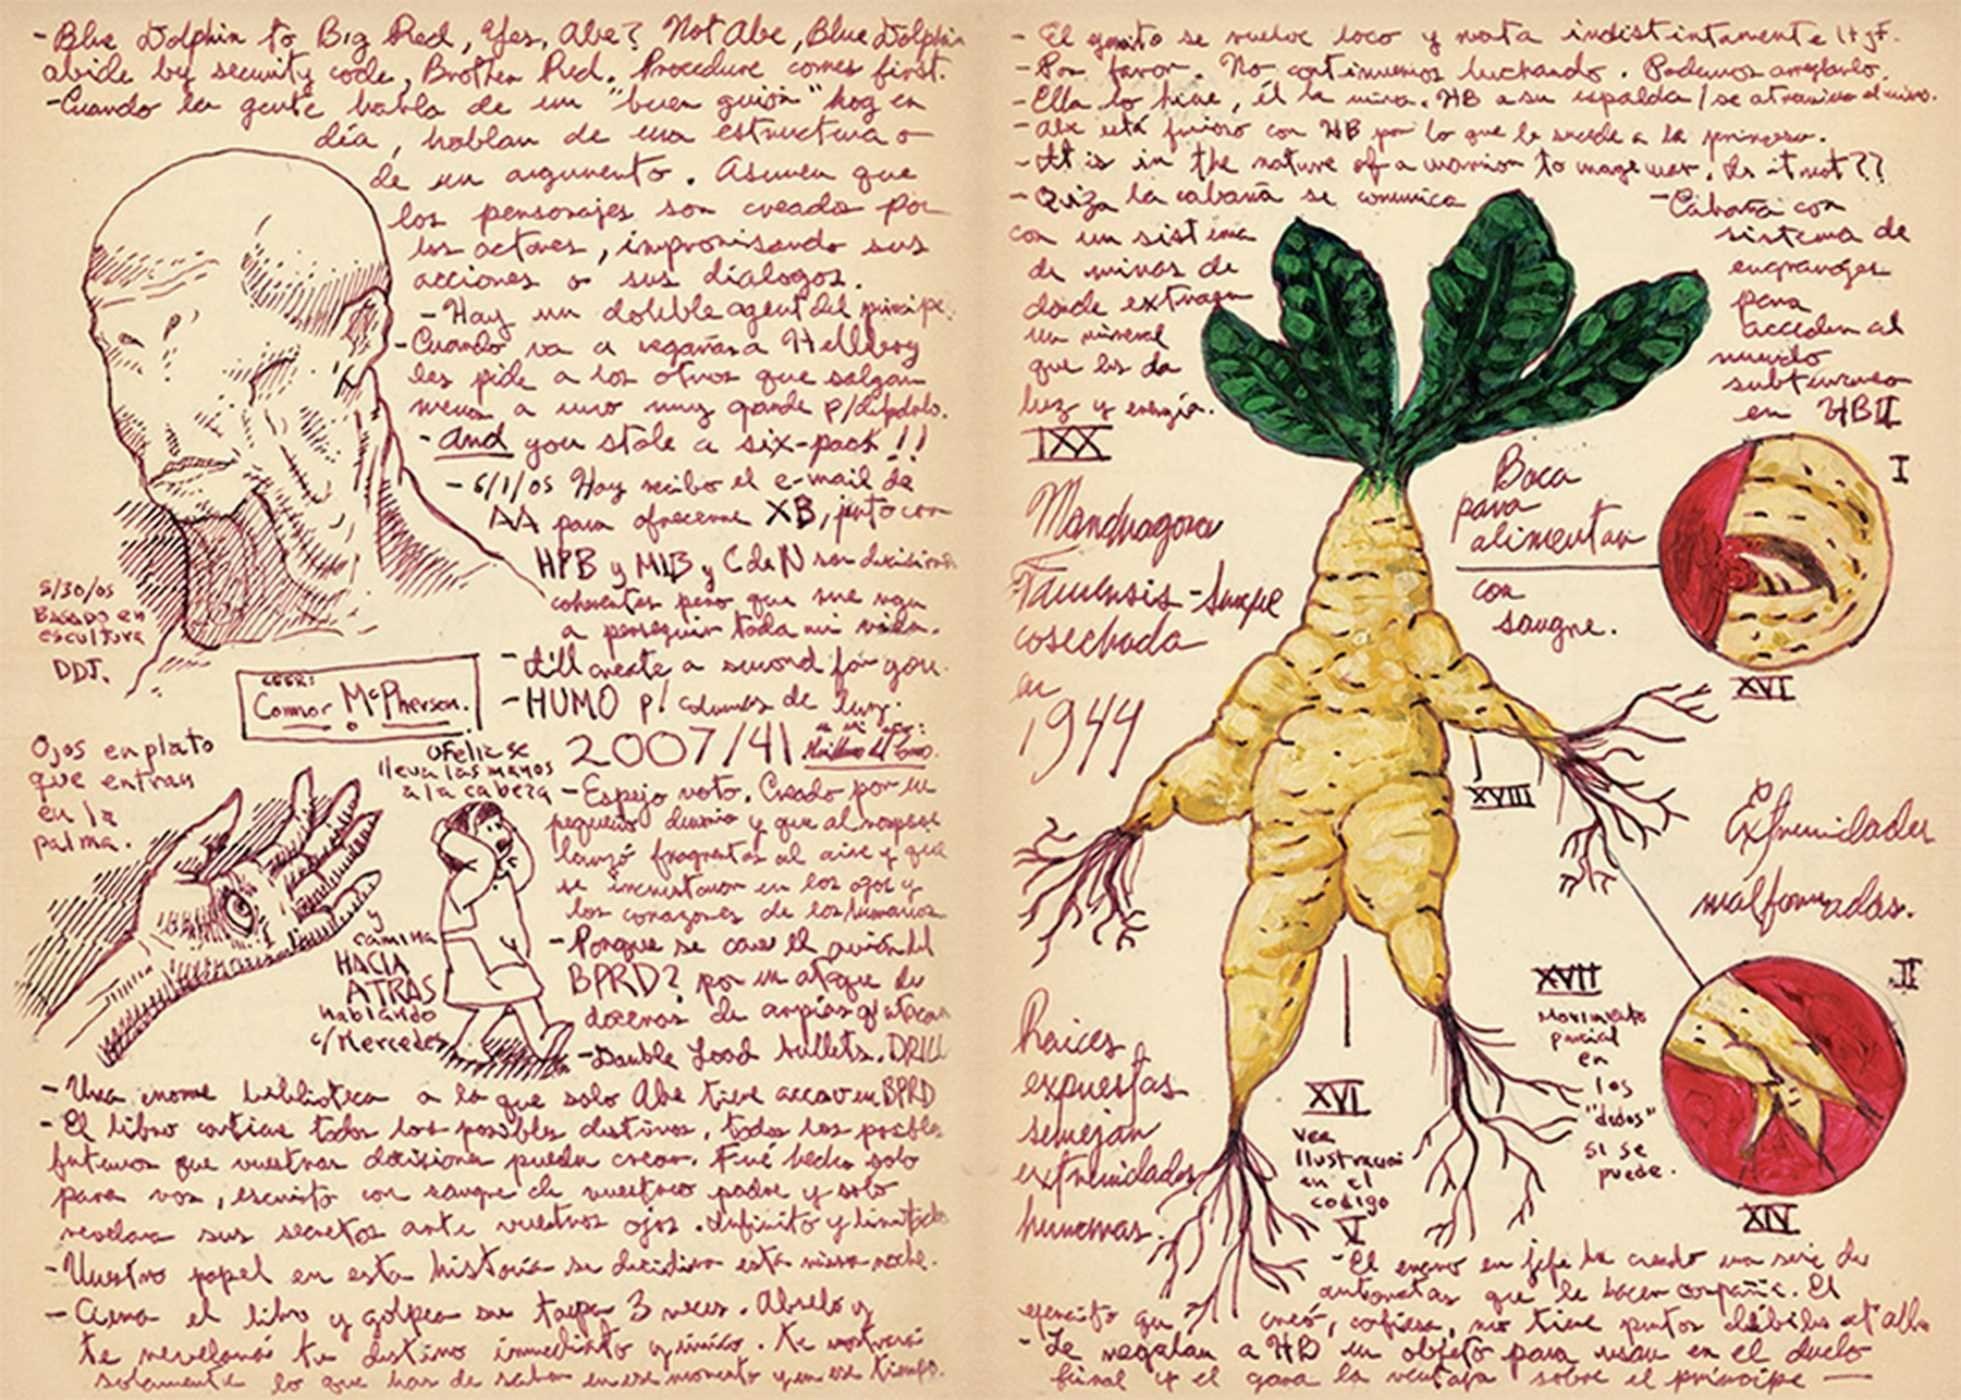 - Blue Dolphin to Big Red, Yes, Abe? Not Abe, Blue Dolphin
abide by security code, Brother Red. Procedure comes first.
- Cuando la gente habla de un "buen guión" hoy en
día, hablan de una estructura o
de un argumento. Asumen que
los personajes son creados por
los actores, improvisando sus
acciones o sus diálogos.
- Hay un doble agent del principe.
- Cuando va a regañar a Hellboy
les pide a los otros que salgan
menos a uno muy grande p/
- And you stole a six-pack!!
- 6/1/05 Hoy recibo el e-mail de
AA para ofrecerme XB, junto con
HPB y MLB y C de N son decisiones
coherentes pero que me van
a perseguir toda mi vida.
- I'll create a second for you.
- HUMO p/ columnas de luz.
5/30/05
Basado en
escultura
DDJ.
LEER:
Connor McPherson.
Ojos en plato
que entran
en la
palma.
Ofelia se
lleva las manos
a la cabeza
y
camina
HACIA
ATRAS
hablando
c/Mercedes
2007/41
- Espejo roto. Creado por un
pequeño demonio y que al romperse
lanzó fragmentos al aire y que
se incrustaron en los ojos y
los corazones de los humanos
- Porque se cae el avión del
BPRD? por un ataque de
docenas de arpías q/ atacan
- Double Load bullets. DRILL
- Una enorme biblioteca a la que solo Abe tiene acceso en BPRD
- El libro contiene todos los posibles destinos, todos los posibles
futuros que vuestras decisiones puedan crear. Fué hecho solo
para vos, escrito con sangre de vuestro padre y solo
revelara sus secretos ante vuestros ojos. Infinito y limitado
- Vuestro papel en esta historia se decidira esta misma noche.
- Cierra el libro y golpea su tapa 3 veces. Abrelo y
te revelará tu destino inmediato y único. te mostrará
solamente lo que has de saber en ese momento y en ese tiempo.
- El ejercito se vuelve loco y mata indistintamente
- Por favor. No continuemos luchando. Podemos arreglarlo.
- Ella lo hiere, él la mira. HB a su espalda / se atraviesa el
- Abe está furioso con HB por lo que le sucede a la princesa.
- It is in the nature of a warrior to wage war. Is it not??
- Quiza la cabaña se comunica
con un sistema
de minas de
donde extraen
un mineral
que les da
luz y energía.
- Cabaña con
sistema de
engranajes
para
acceder al
mundo
subterraneo
en HBII
IXX
Mandragora
cosechada
en
1944
Boca
para
alimentar
con
sangre.
I
XVI
XVIII
Extremidades
malformadas.
II
XVII
Movimiento
parcial
en
los
"dedos"
si se
puede.
XIV
Raices
expuestas
semejan
extremidades
humanas.
XVI
ver
ilustracion
en el
codigo
V
- El enano en jefe ha creado una serie de
automatas que le hacen compañia. El
ejercito que creó, confiesa, no tiene puntos débiles
- Le regalan a HB un objeto para usar en el duelo
final y el gana la ventaja sobre el principe —